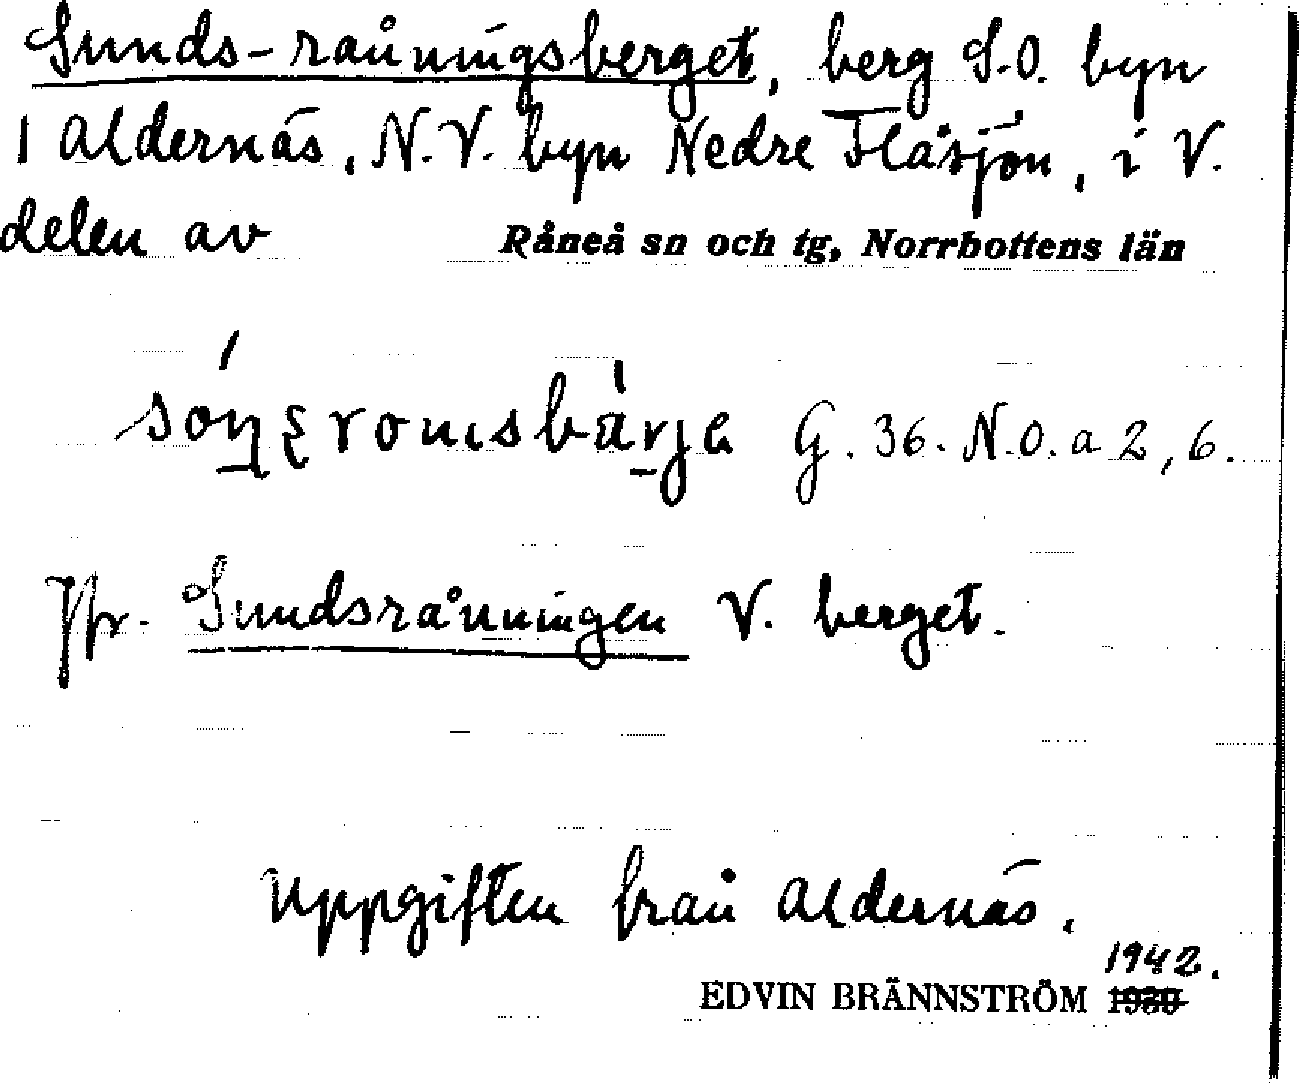 Sunds-råningsberget, berg S.O. byn
Aldernäs, N.V. byn Nedre Flåsjön, i V.
delen av Råneå sn och tg, Norrbottens län
G. 36. N.O. a 2, 6.
Jfr. Sundsråningen V. berget.
Uppgiften från Aldernäs.
1942.
EDVIN BRÄNNSTRÖM 1930